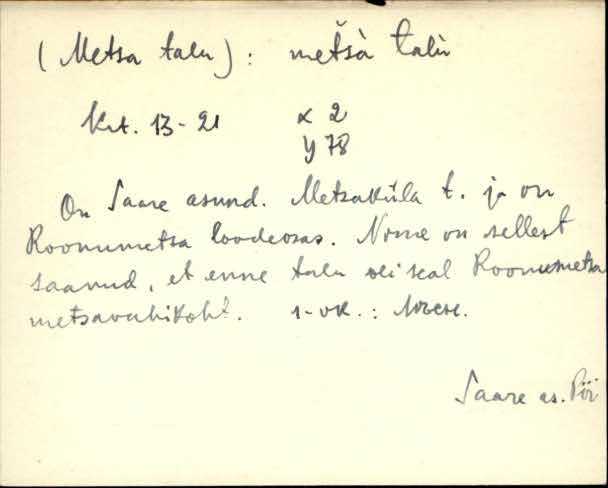 (Metsa talu): metsà talù
Krt. 13-21 x 2
y 78
On Saare asund. Metsaküla t. ja on
Roonumetsa loodeosas. Nime on sellest
saanud, et enne talu oli seal Roonumetsa
metsavahikoht. s-vk.:
Saare as. Pöi